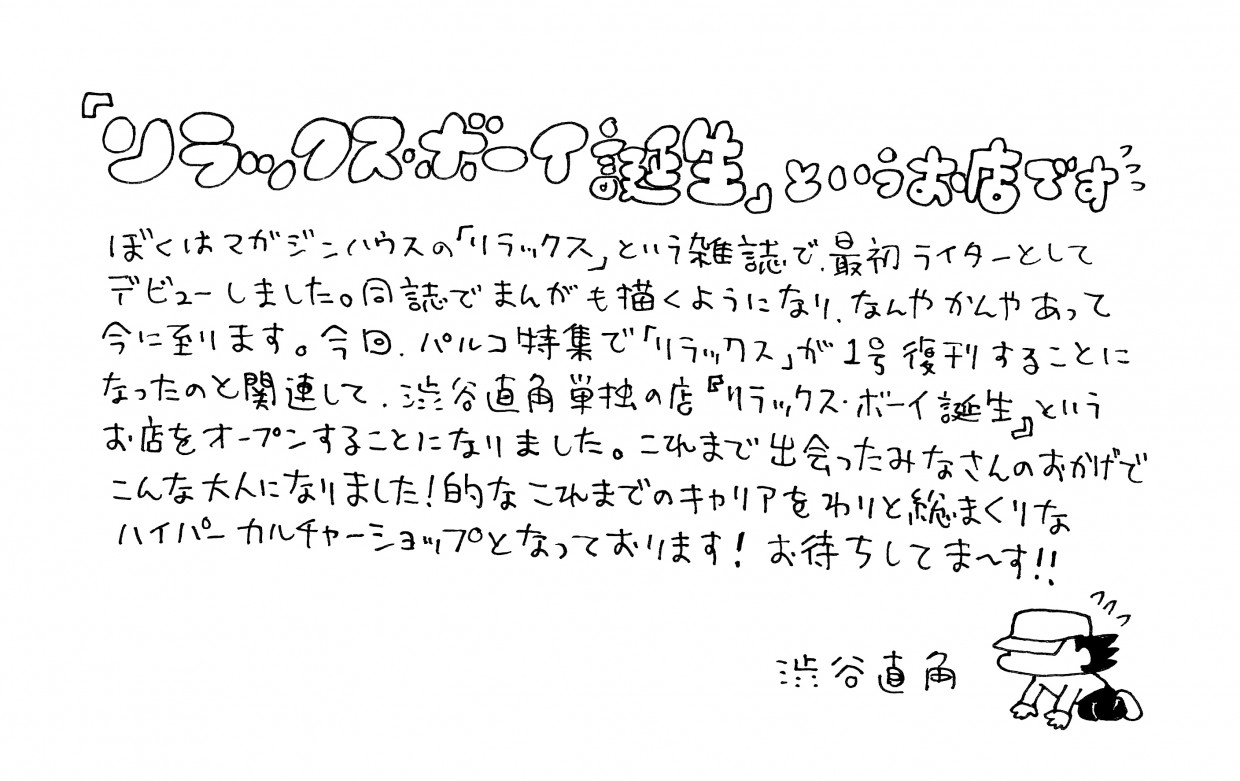 『リラックス・ボーイ誕生』というお店です
ぼくはマガジンハウスの「リラックス」という雑誌で、最初ライターとして
デビューしました。同誌でまんがも描くようになり、なんやかんやあって
今に至ります。今回、パルコ特集で「リラックス」が1号復刊することに
なったのと関連して、渋谷直角単独の店『リラックス・ボーイ誕生』という
お店をオープンすることになりました。これまで出会ったみなさんのおかげで
こんな大人になりました!的なこれまでのキャリアをわりと総まくりな
ハイパーカルチャーショップとなっております!お待ちしてま〜す!!
渋谷直角